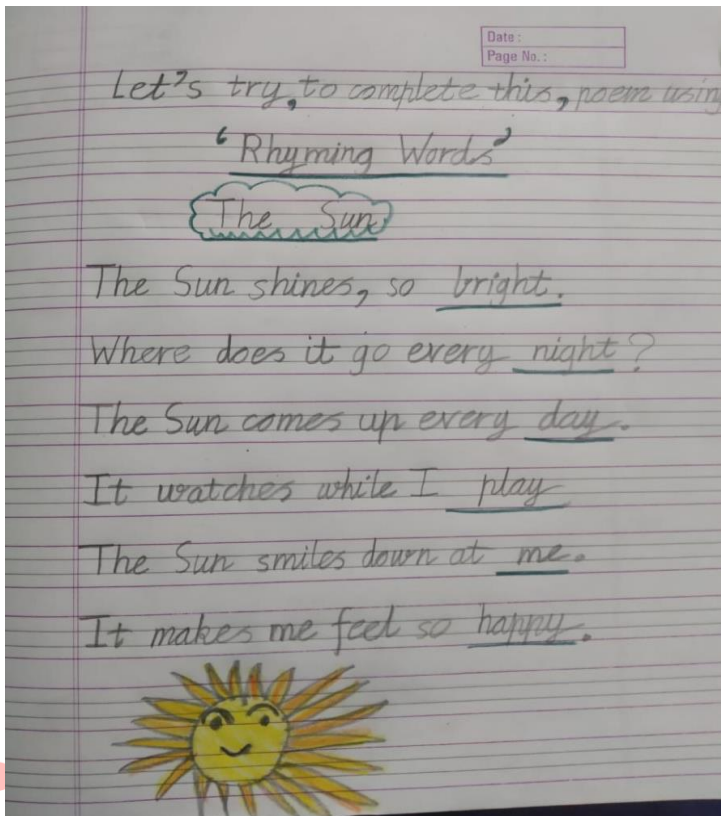 Date :
Page No. :
Let's try, to complete this, poem using
'Rhyming Words'
The Sun
The Sun shines, so bright.
Where does it go every night?
The Sun comes up every day.
It watches while I play
The Sun smiles down at me.
It makes me feel so happy.